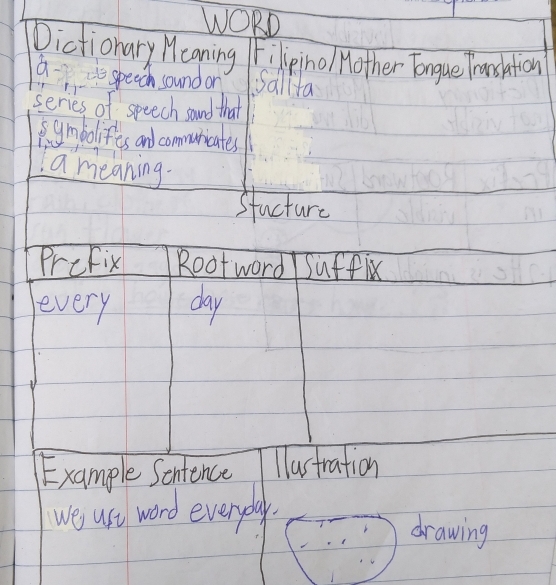 WORD
Dictionary Meaning
Filipino/Mother Tongue Translation
a speech sound or
series of speech sound that
symbolifies and communicates
a meaning.
Salita
Stucture
Prefix Rootword Suffix
every day
Example Sentence
We use word everyday.
Ilustration
drawing